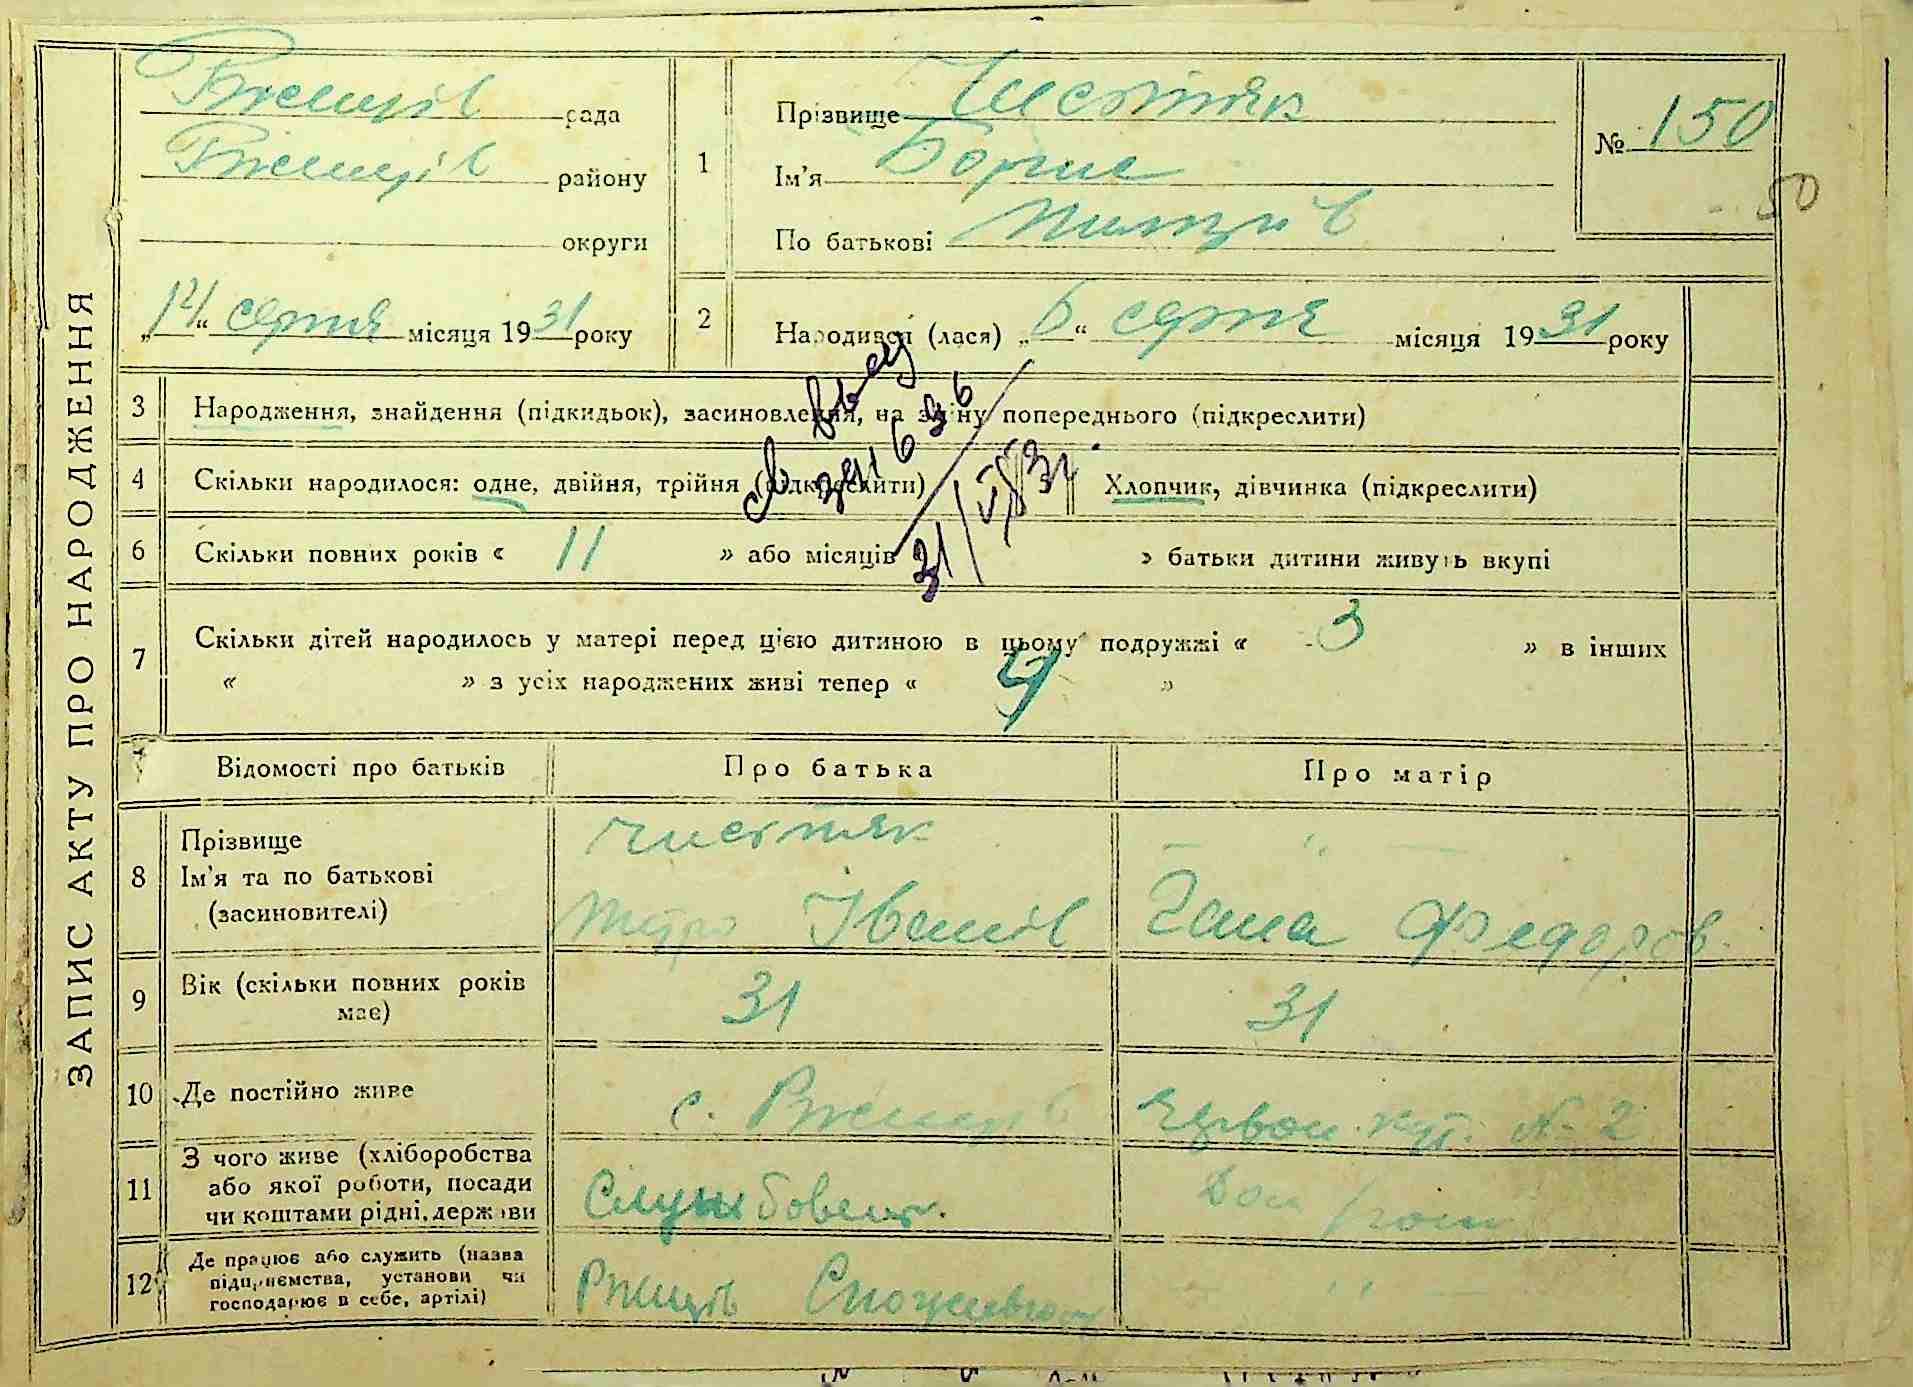 ЗАПИС АКТУ ПРО НАРОДЖЕННЯ
Ржищів рада
Ржищів району
округи
„14“ серпня місяця 1931 року
1
Прізвище Чистяк
Ім'я Борис
По батькові
№ 150
50
2
Народився (лася) „6“ серпня місяця 1931 року
3 Народження, знайдення (підкидьок), засиновлення, на зміну попереднього (підкреслити)
4 Скільки народилося: одне, двійня, трійня (підкреслити) Хлопчик, дівчинка (підкреслити)
6 Скільки повних років « 11 » або місяців » батьки дитини живуть вкупі
31/VIII 31.
7 Скільки дітей народилось у матері перед цією дитиною в цьому подружжі « 3 » в інших
« » з усіх народжених живі тепер « 4 »
Відомості про батьків Про батька Про матір
8 Прізвище
Ім'я та по батькові
(засиновителі)
Чистяк
Петро Іванів
— " —
Гана Федоров.
9 Вік (скільки повних років має) 31 31
10 Де постійно живе с. Ржищів № 2
11 З чого живе (хліборобства
або якої роботи, посади
чи коштами рідні, держави
Службовець. Дом
12 Де працює або служить (назва
підприємства, установи чи
господарює в себе, артілі)
Ржищів
— " —